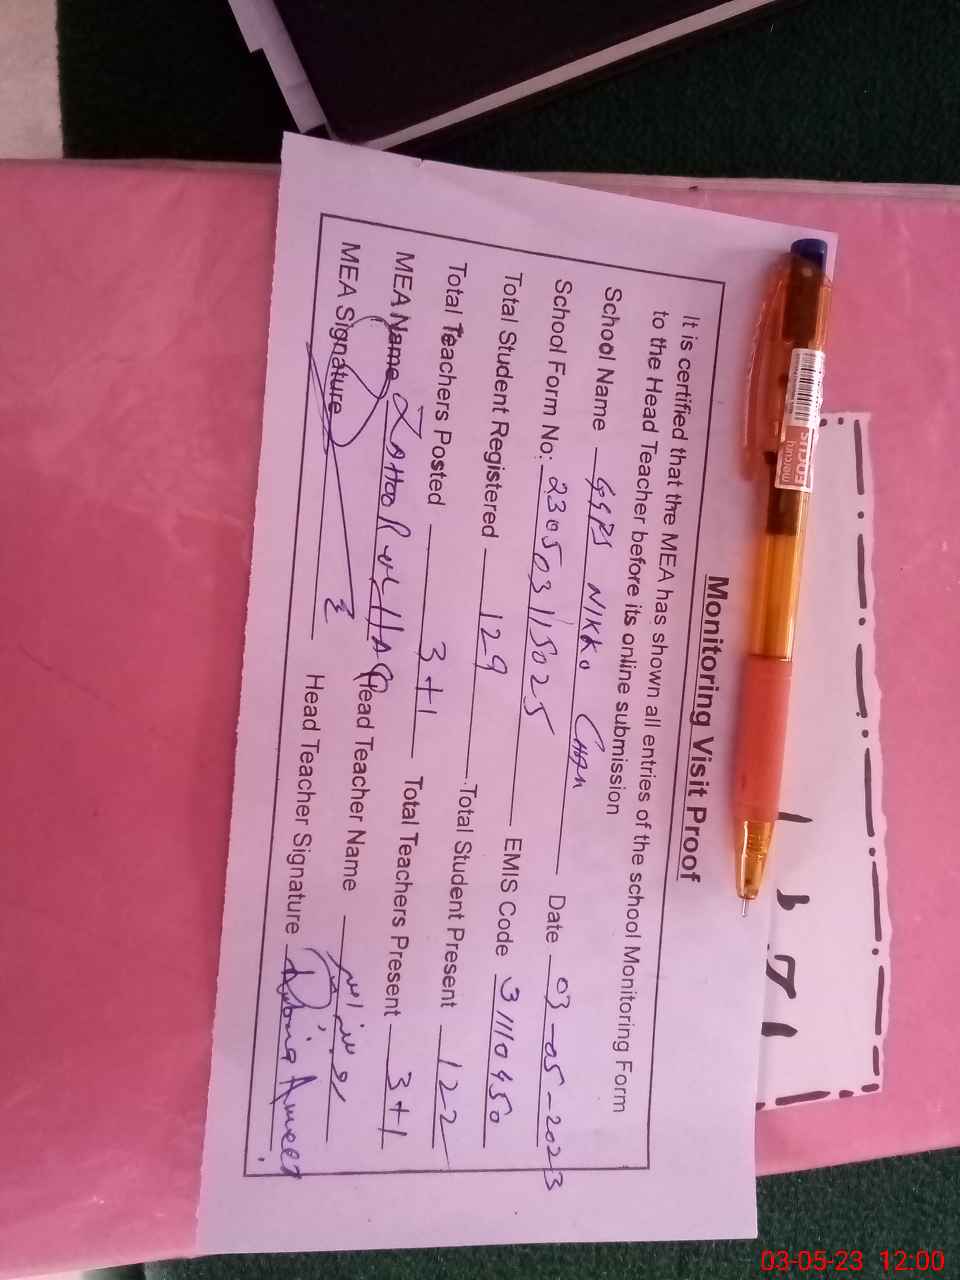 Monitoring Visit Proof
It is certified that the MEA has shown all entries of the school Monitoring Form
to the Head Teacher before its online submission
School Name GGPS NIKKO Chak Date 03-05-2023
School Form No: 230503115025 EMIS Code 31110450
Total Student Registered 129 Total Student Present 122
Total Teachers Posted 3+1 Total Teachers Present 3+1
MEA Name ZAHOOR ul HAQ Head Teacher Name روبینہ امیر
MEA Signature Head Teacher Signature Rubina Ameer
mercury
FOCUS
03-05-23 12:00